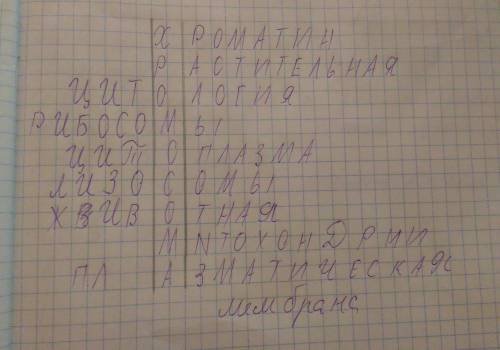 ХРОМАТИН
РАСТИТЕЛЬНАЯ
ЦИТОЛОГИЯ
РИБОСОМЫ
ЦИТОПЛАЗМА
ЛИЗОСОМЫ
ЖИВОТНАЯ
МИТОХОНДРИИ
ПЛАЗМАТИЧЕСКАЯ
мембрана